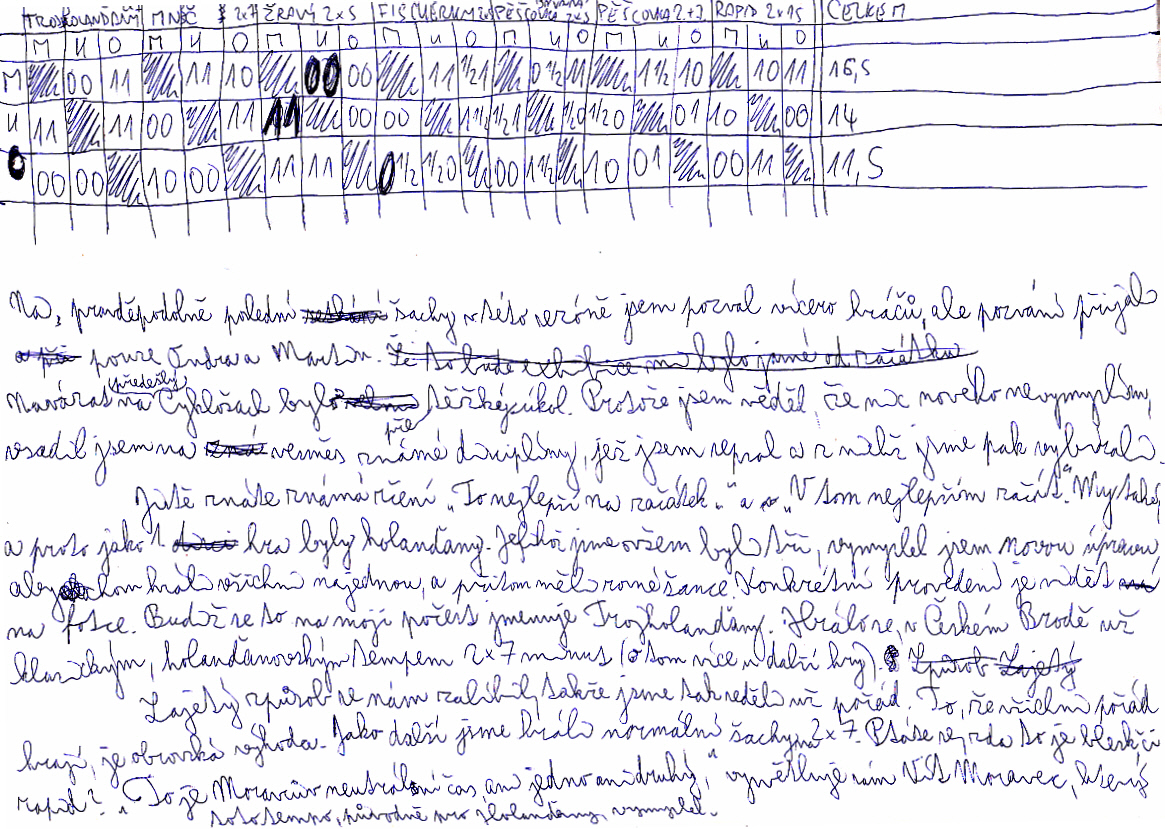 TROJHOLANĎANY MNČ 2x7 ŽRAVÝ 2x5 FISCHERKY 2x5 PĚŠCOVKA 2x5 PĚŠCOVKA 2+2 RAPID 2x15 CELKEM
M U O M U O M U O M U O M U O M U O M U O
M 00 11 11 10 00 00 11 ½1 0½ 11 1½ 10 10 11 16,5
U 11 11 00 11 11 00 00 1½ ½1 ½0 ½0 01 10 00 14
O 00 00 10 00 11 11 0½ ½0 00 1½ 10 01 00 11 11,5
Na, pravděpodobně polední šachy v této sezóně jsem pozval vícero hráčů, ale pozvání přijal
pouze Ondra a Martin.
Navázat na předešlý Cyklošach bylo těžký úkol. Protože jsem věděl, že nic nového nevymyslím,
vsadil jsem na veměs známé disciplíny, jež jsem sepsal a z nichž jsme pak vybírali.
Jistě znáte známá rčení „To nejlepší na začátek." a „V tom nejlepším začít." My také,
a proto jako 1. hra byly holanďany. Jelikož jsme ovšem byli tři, vymyslel jsem novou úpravu,
abychom hráli všichni najednou, a přitom měli rovné šance. Konkrétní provedení je vidět
na fotce. Budiž se to na moji počest jmenuje Trojholanďany. Hrálo se, v Českém Brodě už
klasickým, holanďanovským tempem 2x7 minus (o tom více u další hry).
Zajetý způsob se nám zalíbil, takže jsme tak seděli už pořád. To, že všichni pořád
hrají, je obrovská výhoda. Jako další jsme hráli normální šachy na 2x7. Ptáte se, zda to je blesk, či
rapid? „To je Moravcův neutrální čas, ani jedno ani druhý," vysvětluje nám Vít Moravec, který
toto tempo, původně pro holanďany, vymyslel.